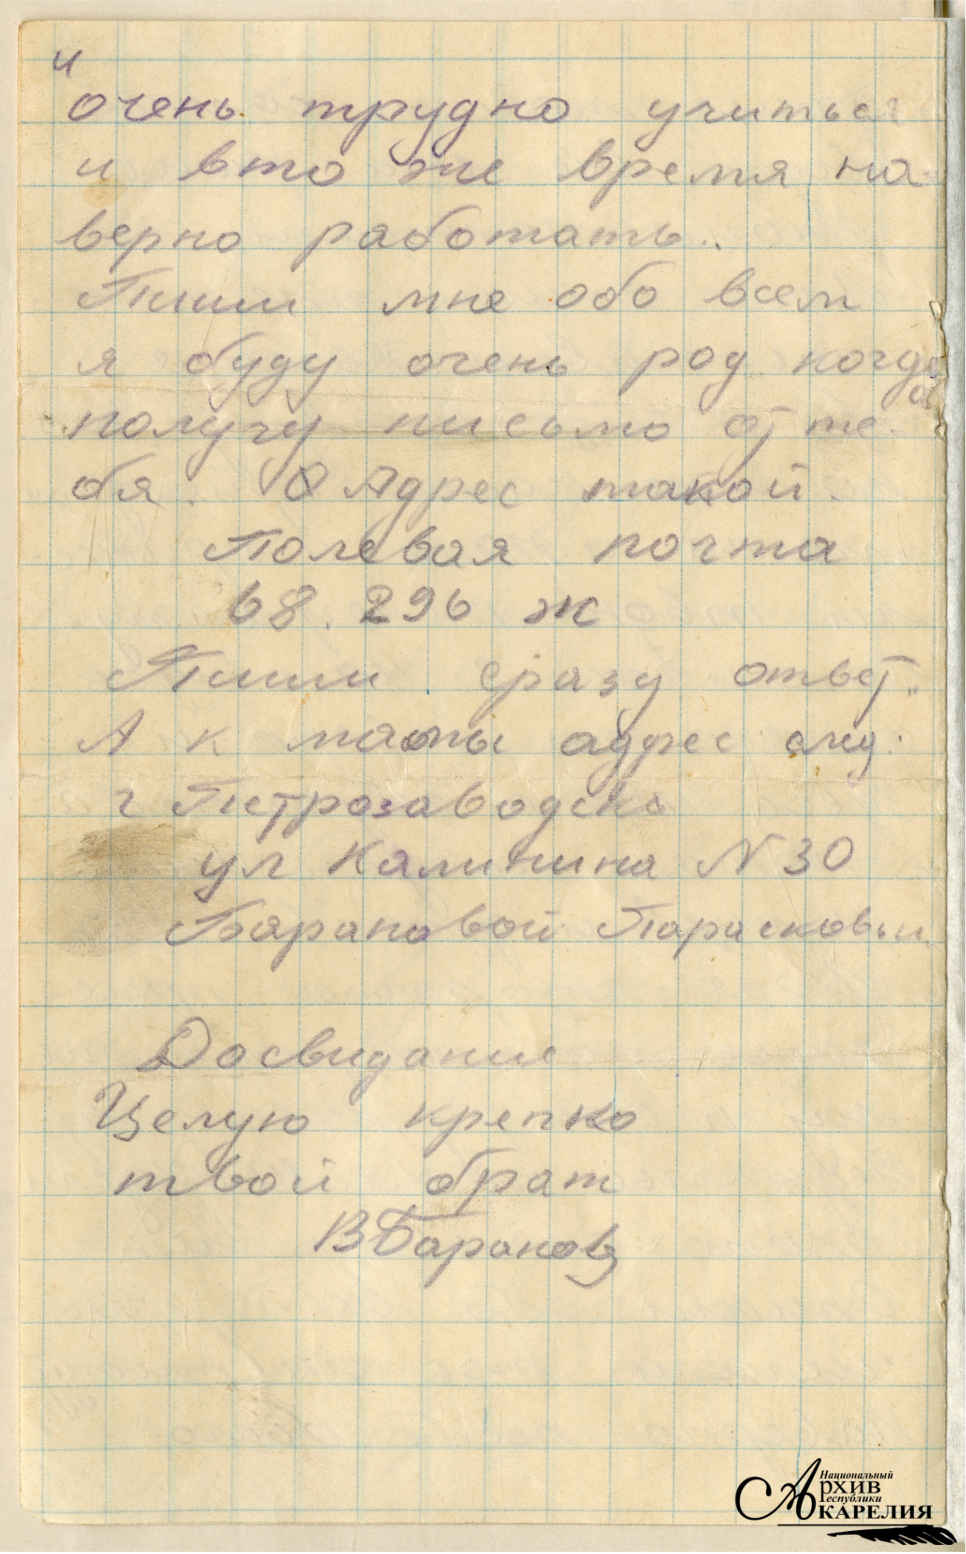 и
очень трудно учиться
и вто же время на
верно работать..
Пиши мне обо всем
я буду очень рад когда
получу письмо от те
бя. Адрес такой.
Полевая почта
68.296 ж
Пиши сразу ответ..
А к мамы адрес след.
г Петрозаводск
ул Калинина N 30
Барановой Парасковьи
Досвидание
Целую крепко
твой брат
В Баранов
Национальный
Архив
Республики
Карелия